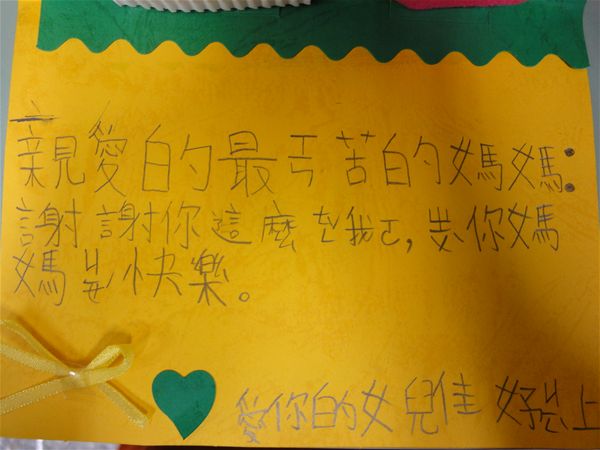 親愛的最苦的媽媽:
謝謝你這麼我,你媽
媽快樂。
愛你的女兒佳妤上